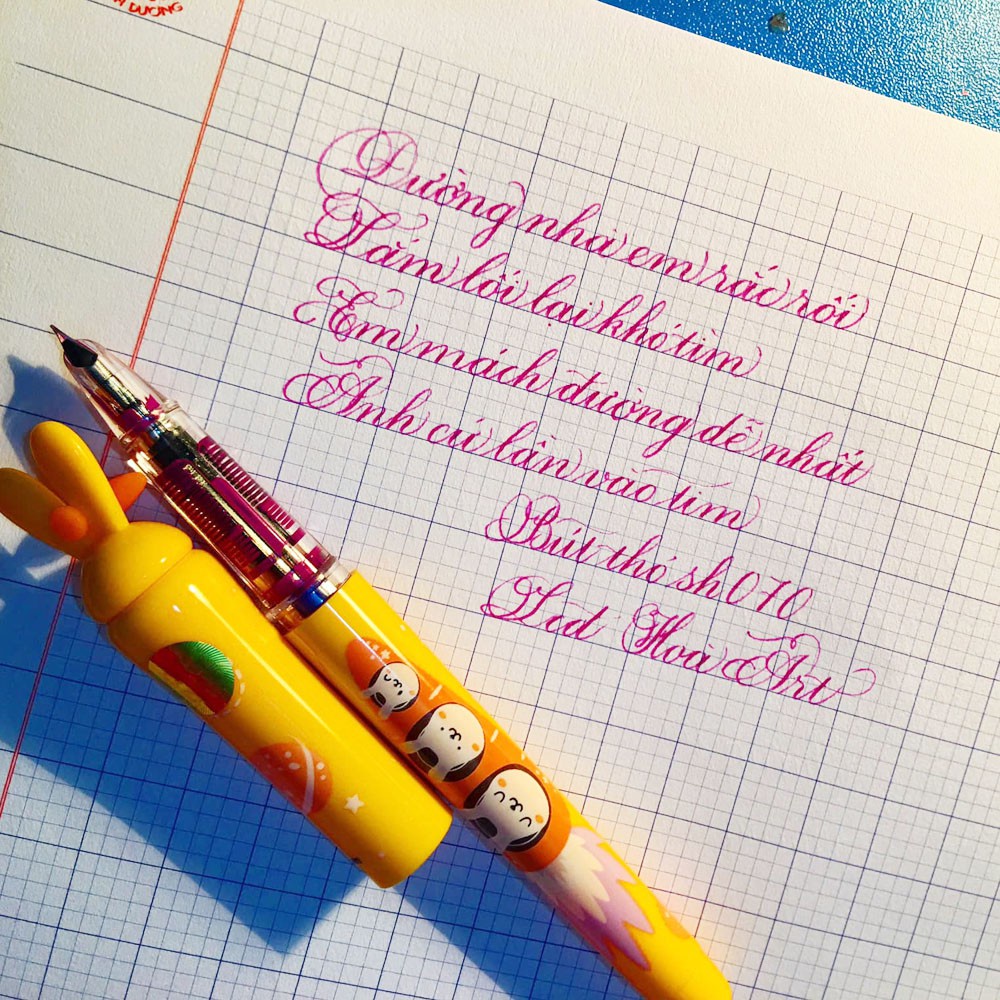 DƯƠNG
Đường nhà em rắc rối
Lắm lối lại khó tìm
Em mách đường dễ nhất
Anh cứ lần vào tim
Bút thỏ sh 070
Hoa Art